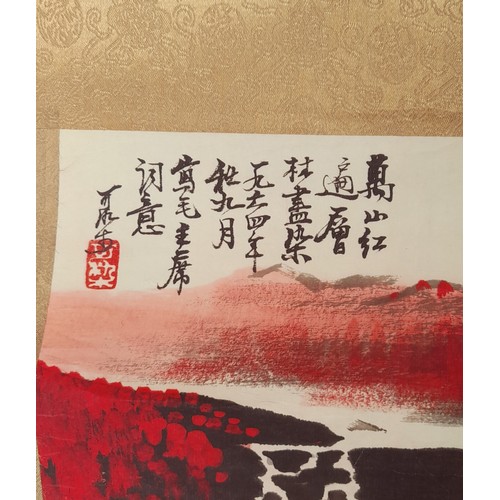 萬山紅
遍層
林盡染
一九六四年
秋九月
寫毛主席
詞意
可染
可染